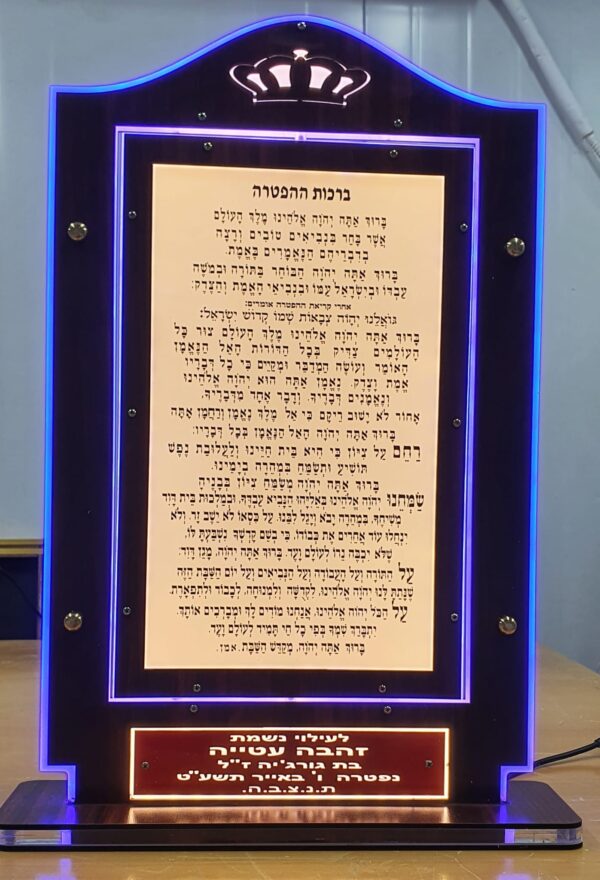 ברכות ההפטרה
בָּרוּךְ אַתָּה יְהֹוָה אֱלֹהֵינוּ מֶלֶךְ הָעוֹלָם
אֲשֶׁר בָּחַר בִּנְבִיאִים טוֹבִים וְרָצָה
בְדִבְרֵיהֶם הַנֶּאֱמָרִים בֶּאֱמֶת.
בָּרוּךְ אַתָּה יְהֹוָה הַבּוֹחֵר בַּתּוֹרָה וּבְמֹשֶׁה
עַבְדּוֹ וּבְיִשְׂרָאֵל עַמּוֹ וּבִנְבִיאֵי הָאֱמֶת וְהַצֶּדֶק:
אחרי קריאת ההפטרה אומרים:
גּוֹאֲלֵנוּ יְהֹוָה צְבָאוֹת שְׁמוֹ קְדוֹשׁ יִשְׂרָאֵל:
בָּרוּךְ אַתָּה יְהֹוָה אֱלֹהֵינוּ מֶלֶךְ הָעוֹלָם צוּר כָּל
הָעוֹלָמִים צַדִּיק בְּכָל הַדּוֹרוֹת הָאֵל הַנֶּאֱמָן
הָאוֹמֵר וְעוֹשֶׂה הַמְדַבֵּר וּמְקַיֵּם כִּי כָל דְּבָרָיו
אֱמֶת וָצֶדֶק. נֶאֱמָן אַתָּה הוּא יְהֹוָה אֱלֹהֵינוּ
וְנֶאֱמָנִים דְּבָרֶיךָ. וְדָבָר אֶחָד מִדְּבָרֶיךָ.
אָחוֹר לֹא יָשׁוּב רֵיקָם כִּי אֵל מֶלֶךְ נֶאֱמָן וְרַחֲמָן אָתָּה
בָּרוּךְ אַתָּה יְהֹוָה הָאֵל הַנֶּאֱמָן בְּכָל דְּבָרָיו:
רַחֵם עַל צִיּוֹן כִּי הִיא בֵּית חַיֵּינוּ וְלַעֲלוּבַת נֶפֶשׁ
תּוֹשִׁיעַ וּתְשַׂמַּח בִּמְהֵרָה בְיָמֵינוּ.
בָּרוּךְ אַתָּה יְהֹוָה מְשַׂמֵּחַ צִיּוֹן בְּבָנֶיהָ
שַׂמְּחֵנוּ יְהֹוָה אֱלֹהֵינוּ בְּאֵלִיָּהוּ הַנָּבִיא עַבְדֶּךָ. וּבְמַלְכוּת בֵּית דָּוִד
מְשִׁיחֶךָ. בִּמְהֵרָה יָבֹא וְיָגֵל לִבֵּנוּ. עַל כִּסְאוֹ לֹא יֵשֵׁב זָר. וְלֹא
יִנְחֲלוּ עוֹד אֲחֵרִים אֶת כְּבוֹדוֹ. כִּי בְשֵׁם קָדְשְׁךָ נִשְׁבַּעְתָּ לּוֹ.
שֶׁלֹּא יִכְבֶּה נֵרוֹ לְעוֹלָם וָעֶד. בָּרוּךְ אַתָּה יְהֹוָה. מָגֵן דָּוִד:
עַל הַתּוֹרָה וְעַל הָעֲבוֹדָה וְעַל הַנְּבִיאִים וְעַל יוֹם הַשַּׁבָּת הַזֶּה.
שֶׁנָּתַתָּ לָּנוּ יְהֹוָה אֱלֹהֵינוּ. לִקְדֻשָּׁה וְלִמְנוּחָה. לְכָבוֹד וּלְתִפְאָרֶת.
עַל הַכֹּל יְהֹוָה אֱלֹהֵינוּ. אֲנַחְנוּ מוֹדִים לָךְ וּמְבָרְכִים אוֹתָךְ
יִתְבָּרַךְ שִׁמְךָ בְּפִי כָּל חַי תָּמִיד לְעוֹלָם וָעֶד.
בָּרוּךְ אַתָּה יְהֹוָה, מְקַדֵּשׁ הַשַּׁבָּת. אמן.
לעילוי נשמת
זהבה עטייה
בת גורג'יה ז"ל
נפטרה ו' באייר תשע"ט
ת.נ.צ.ב.ה.